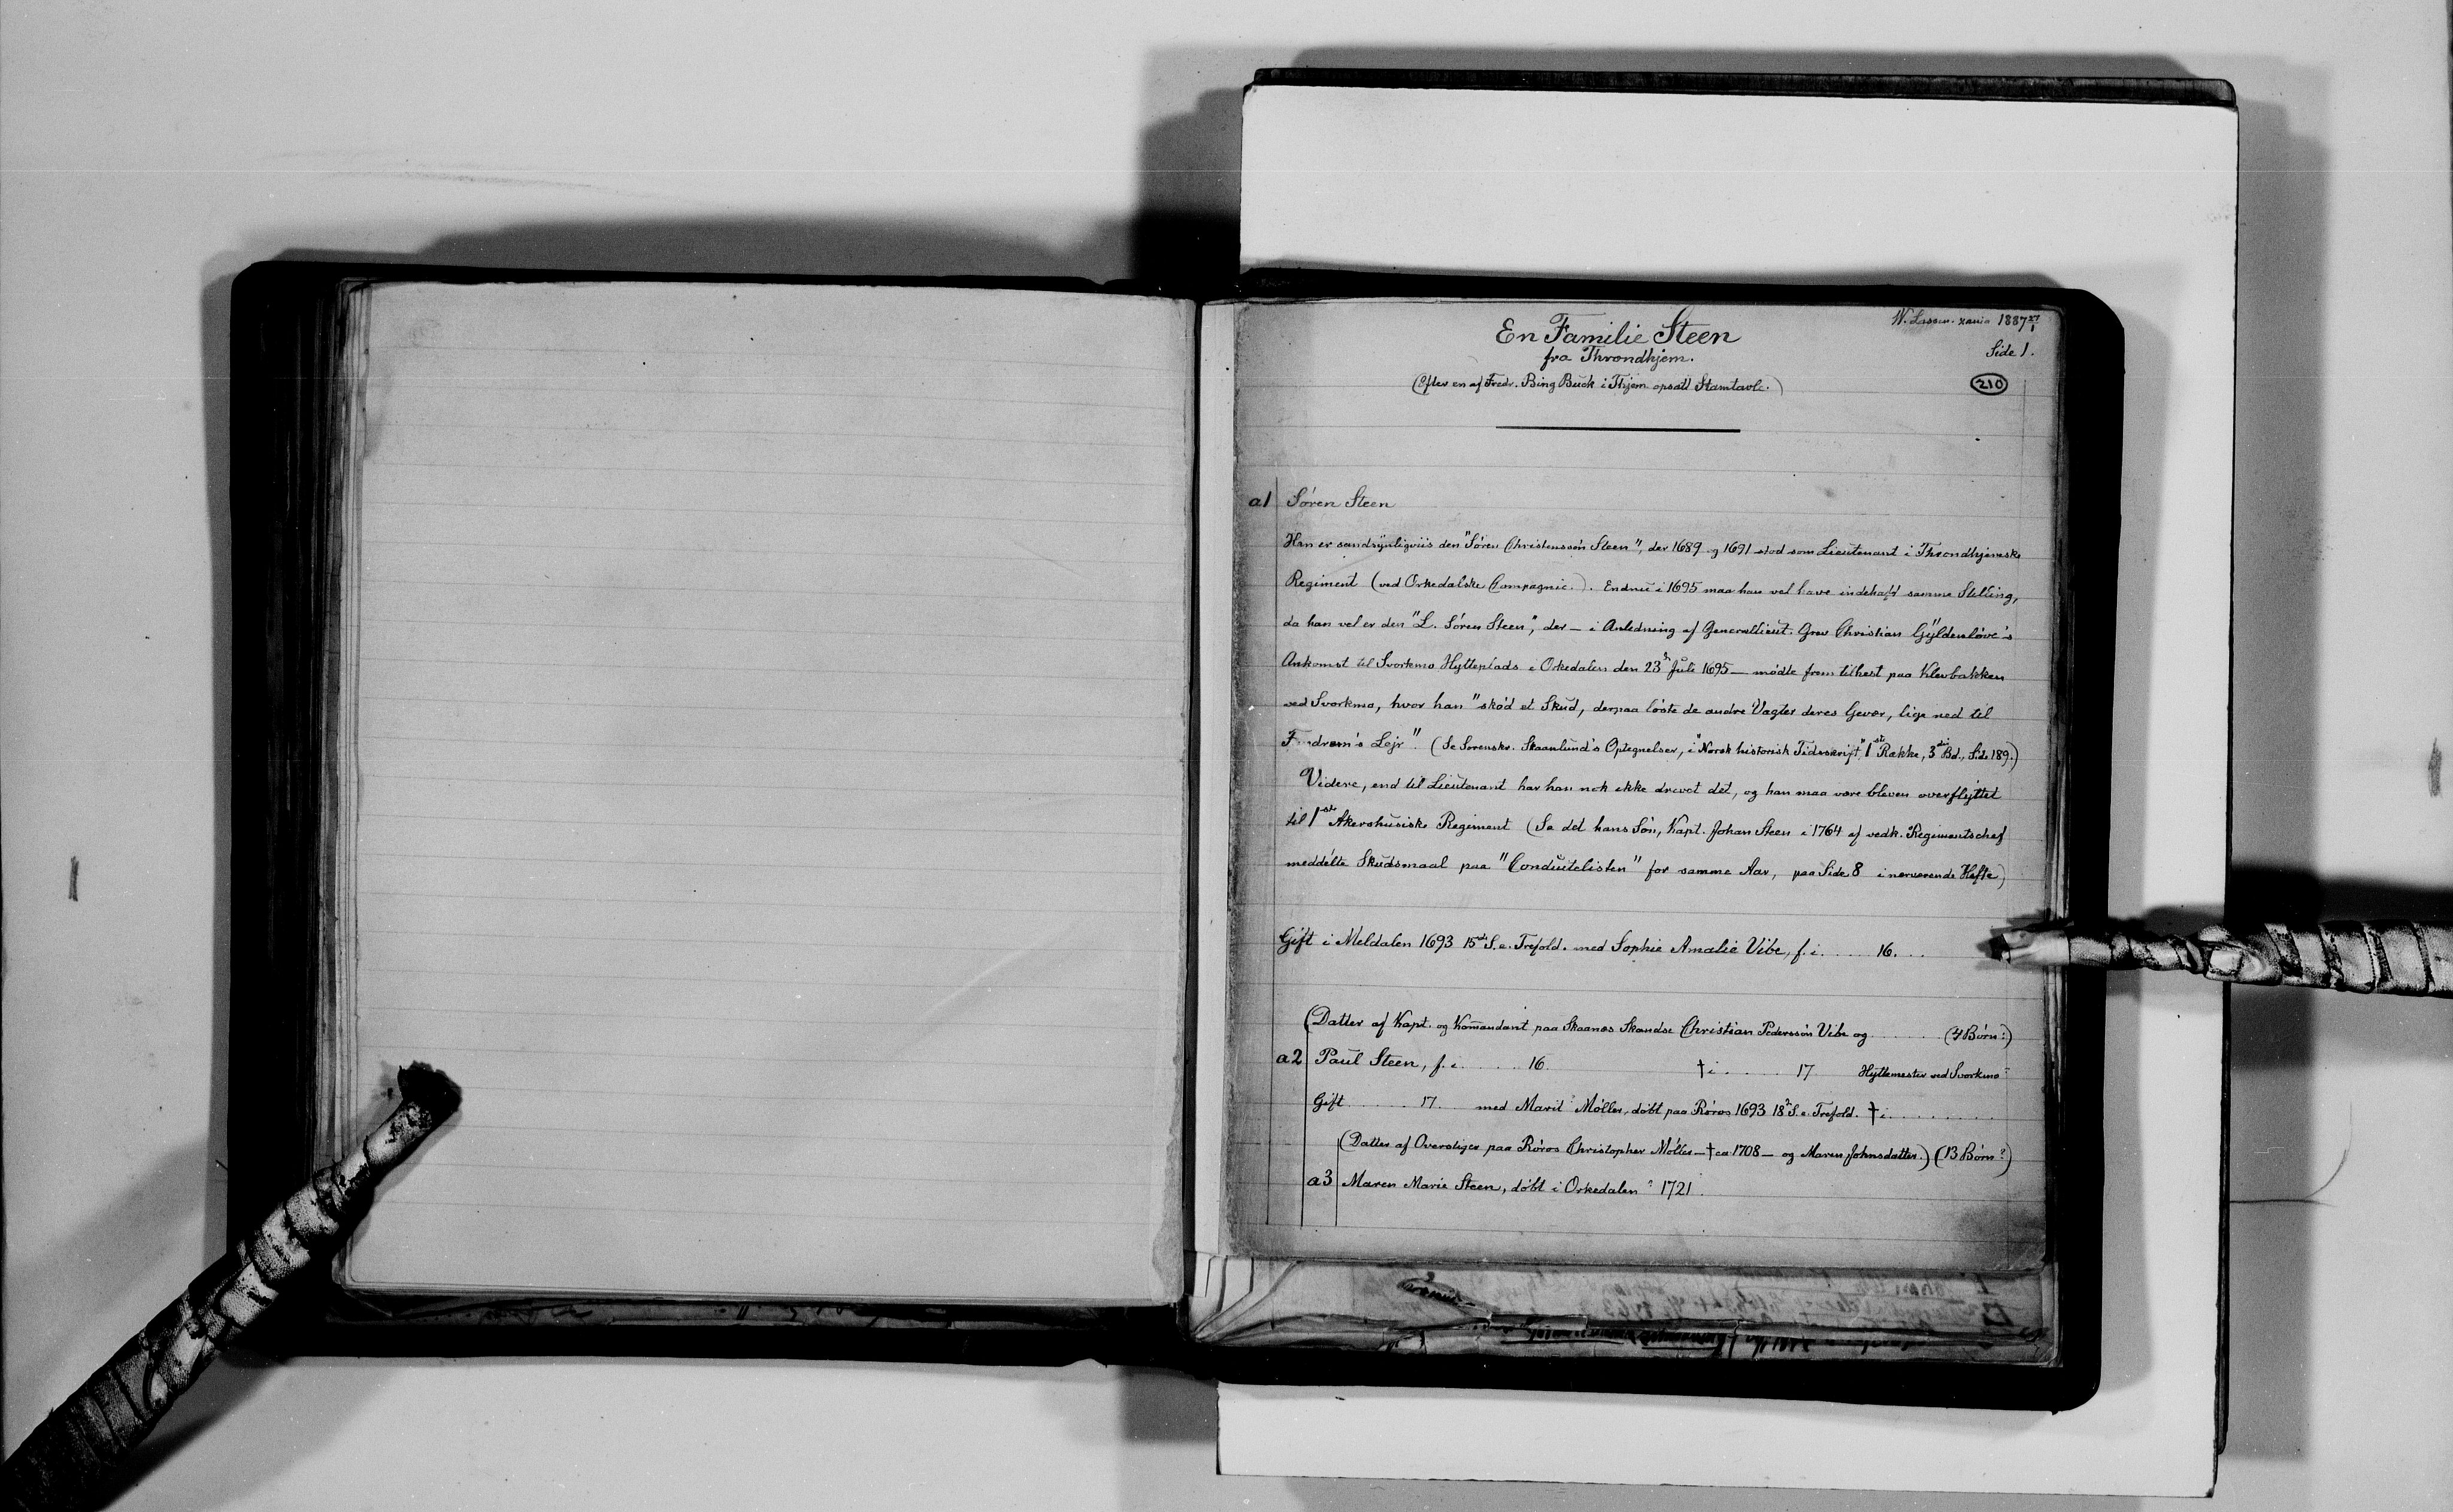 W. Lassen. xania 1887 XI/1
En Familie Steen
Side 1.
fra Throndhjem.
(Efter en af Fredr. Bing Buck i Thjem opsatt Stamtavle.)
210
a1 Sören Steen
Han er sandsynligviis den "Sören Christenssön Steen", der 1689 og 1691 stod som Lieutenant i Throndhjemske
Regiment (ved Orkedalske Compagnie.). Endnu i 1695 maa han vel have indehaft samme Stilling,
da han vel er den "L. Sören Steen", der – i Anledning af Generallieut. Grev Christian Gyldenlöve's
Ankomst til Svorkmo Hytteplads i Orkedalen den 23de Juli 1695 – mödte frem tilhest paa Klevbakken
ved Svorkmo, hvor han "sköd et Skud, derpaa löste de andre Vagter deres Gevær, lige ned til
Lejr". (Se Sorenskr. Skaanlund's Optegnelser, i "Norsk historisk Tidsskrift", 1ste Række, 3die Bd., Side 189.)
Videre, end til Lieutenant har han nok ikke drevet det, og han maa være bleven overflyttet
til 1ste Akershusiske Regiment (Se det hans Sön, Kapt. Johan Steen i 1764 af vedk. Regimentschef
meddelte Skudsmaal paa "Conduitelisten" for samme Aar, paa Side 8 i nærværende Hefte)
Gift i Meldalen 1693 15de S. e. Trefold. med Sophie Amalie Vibe, f. i ..... 16. ...
(Datter af Kapt. og Komandant paa Skaanes Skandse Christian Pederssön Vibe og ...... (4 Börn?)
a2 Paul Steen, f. i ..... 16 † i ...... 17 Hyttemester ved Svorkmo
Gift ........ 17. med Marit Möller, döbt paa Röros 1693 18de S. e. Trefold. † i ............
(Datter af Overstiger paa Röros Christopher Möller – † ca 1708 – og Maren Johnsdatter.) (13 Börn?)
a3 Maren Marie Steen, döbt i Orkedalen ? 1721.